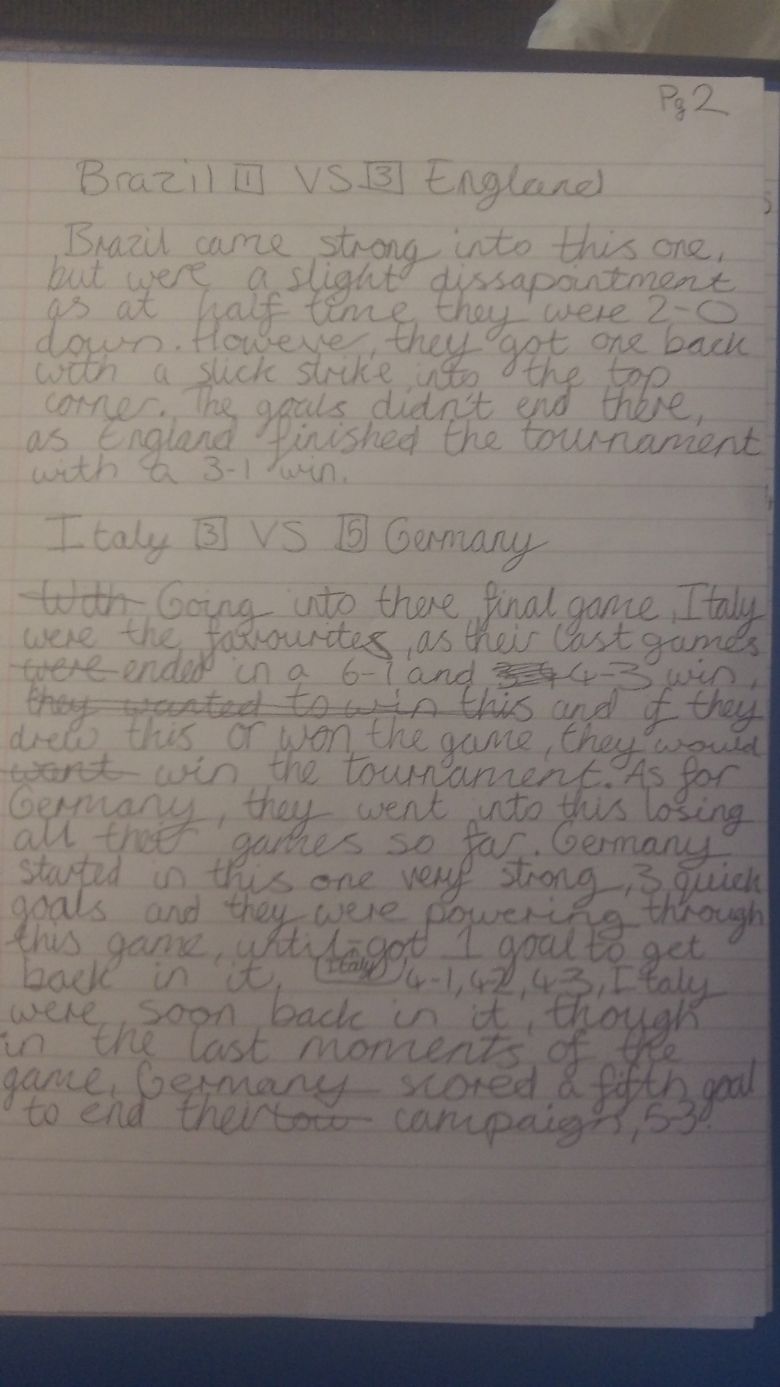 Pg 2
Brazil 1 VS 3 England
Brazil came strong into this one,
but were a slight dissapointment
as at half time they were 2-0
down. However, they got one back
with a slick strike into the top
corner. The goals didn't end there,
as England finished the tournament
with a 3-1 win.
Italy 3 VS 5 Germany
With Going into there final game, Italy
were the favourites, as their last games
were ended in a 6-1 and 4-3 win,
they wanted to win this and if they
drew this or won the game, they would
want win the tournament. As for
Germany, they went into this losing
all their games so far. Germany
started in this one very strong, 3 quick
goals and they were powering through
this game, until got 1 goal to get
back in it. (Italy) 4-1, 4-2, 4-3, Italy
were soon back in it, though
in the last moments of the
game, Germany scored a fifth goal
to end their campaign, 5-3.